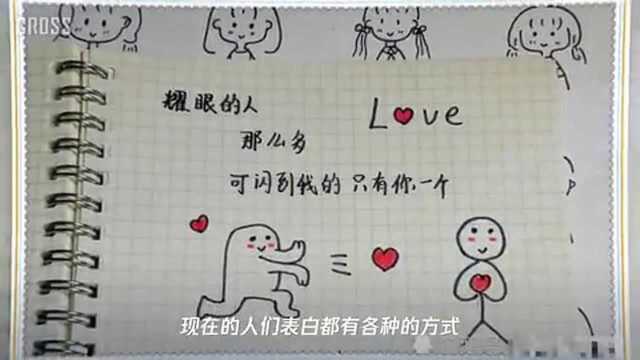 GROSS
耀眼的人
Love
那么多
可闪到我的 只有你一个
现在的人们表白都有各种的方式